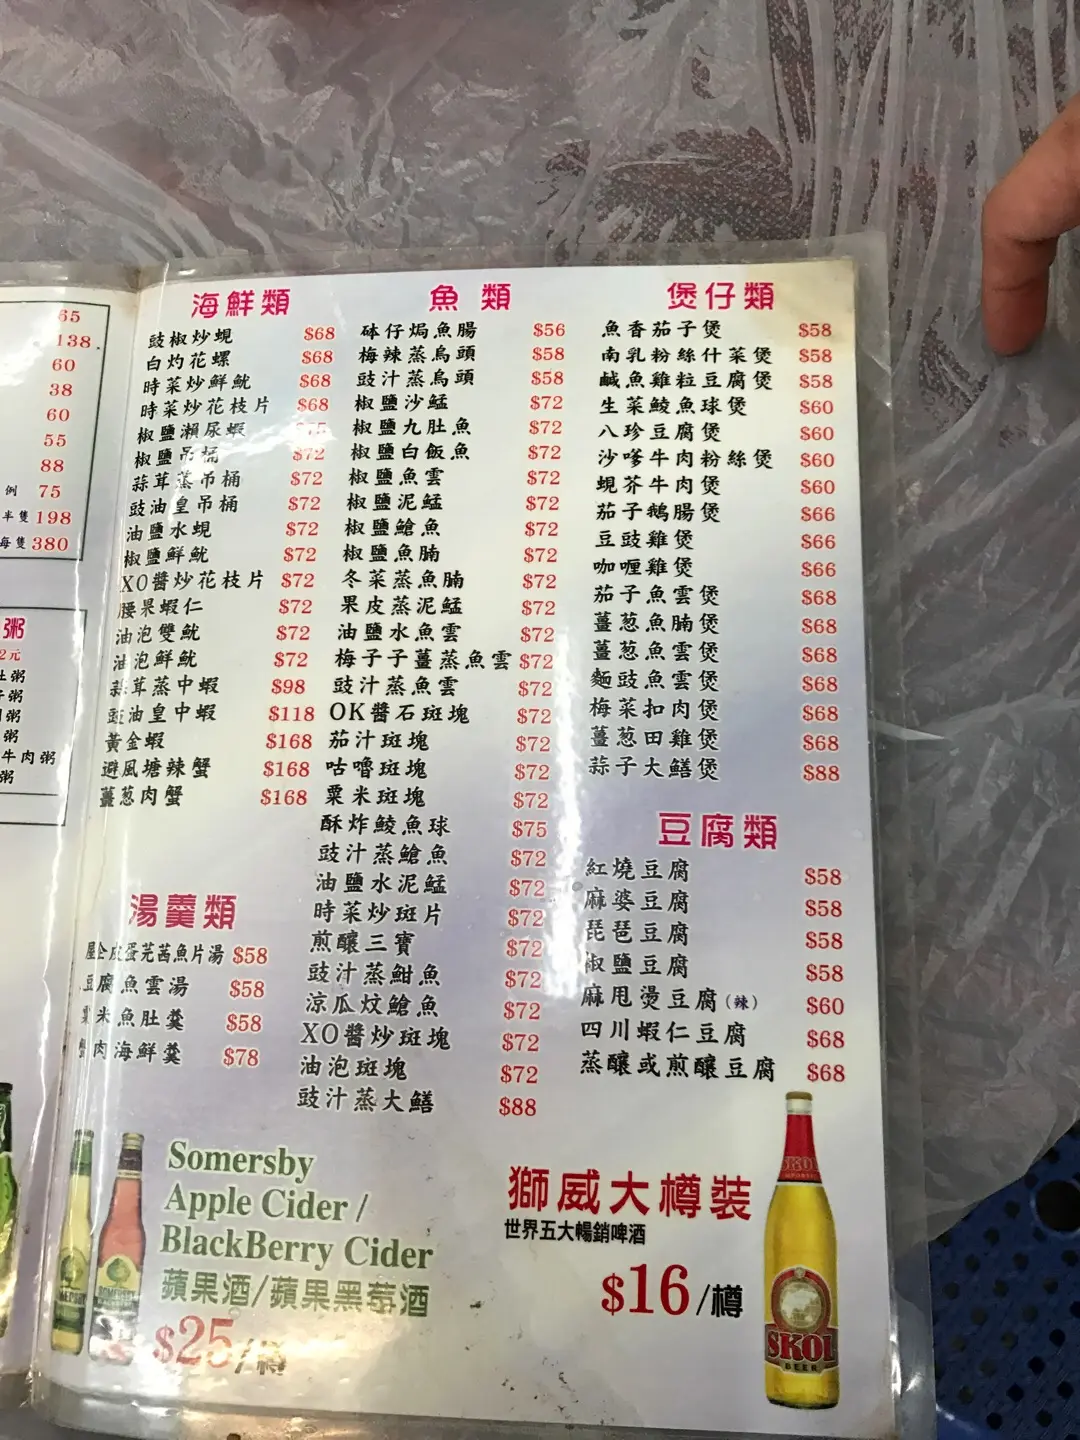 65
138
60
38
60
55
88
例 75
半隻 198
每隻 380
粥
2元
粥
粥
粥
粥
牛肉粥
粥
海鮮類
豉椒炒蜆 $68
白灼花螺 $68
時菜炒鮮魷 $68
時菜炒花枝片 $68
椒鹽瀨尿蝦 $75
椒鹽吊桶 $72
蒜茸蒸吊桶 $72
豉油皇吊桶 $72
油鹽水蜆 $72
椒鹽鮮魷 $72
XO醬炒花枝片 $72
腰果蝦仁 $72
油泡雙魷 $72
油泡鮮魷 $72
蒜茸蒸中蝦 $98
豉油皇中蝦 $118
黃金蝦 $168
避風塘辣蟹 $168
薑葱肉蟹 $168
湯羹類
皮蛋芫茜魚片湯 $58
豆腐魚雲湯 $58
粟米魚肚羹 $58
蟹肉海鮮羹 $78
魚類
砵仔焗魚腸 $56
梅辣蒸烏頭 $58
豉汁蒸烏頭 $58
椒鹽沙鯭 $72
椒鹽九肚魚 $72
椒鹽白飯魚 $72
椒鹽魚雲 $72
椒鹽泥鯭 $72
椒鹽鎗魚 $72
椒鹽魚腩 $72
冬菜蒸魚腩 $72
果皮蒸泥鯭 $72
油鹽水魚雲 $72
梅子子薑蒸魚雲 $72
豉汁蒸魚雲 $72
OK醬石斑塊 $72
茄汁斑塊 $72
咕嚕斑塊 $72
粟米斑塊 $72
酥炸鯪魚球 $75
豉汁蒸鎗魚 $72
油鹽水泥鯭 $72
時菜炒斑片 $72
煎釀三寶 $72
豉汁蒸魽魚 $72
涼瓜炆鎗魚 $72
XO醬炒斑塊 $72
油泡斑塊 $72
豉汁蒸大鱔 $88
煲仔類
魚香茄子煲 $58
南乳粉絲什菜煲 $58
鹹魚雞粒豆腐煲 $58
生菜鯪魚球煲 $60
八珍豆腐煲 $60
沙嗲牛肉粉絲煲 $60
蜆芥牛肉煲 $60
茄子鵝腸煲 $66
豆豉雞煲 $66
咖喱雞煲 $66
茄子魚雲煲 $68
薑葱魚腩煲 $68
薑葱魚雲煲 $68
麵豉魚雲煲 $68
梅菜扣肉煲 $68
薑葱田雞煲 $68
蒜子大鱔煲 $88
豆腐類
紅燒豆腐 $58
麻婆豆腐 $58
琵琶豆腐 $58
椒鹽豆腐 $58
麻甩燙豆腐(辣) $60
四川蝦仁豆腐 $68
蒸釀或煎釀豆腐 $68
Somersby
Apple Cider /
BlackBerry Cider
蘋果酒/蘋果黑莓酒
$25/樽
獅威大樽裝
世界五大暢銷啤酒
$16/樽
SKOL
SKOL
BEER